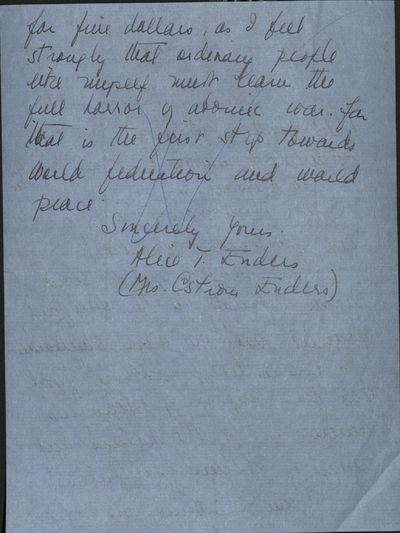 for five dollars, as I feel
strongly that ordinary people
like myself must learn the
full horror of atomic war. For
that is the first step towards
world federation and world
peace.
Sincerely yours.
Alice T. Enders
(Mrs. Ostrom Enders)